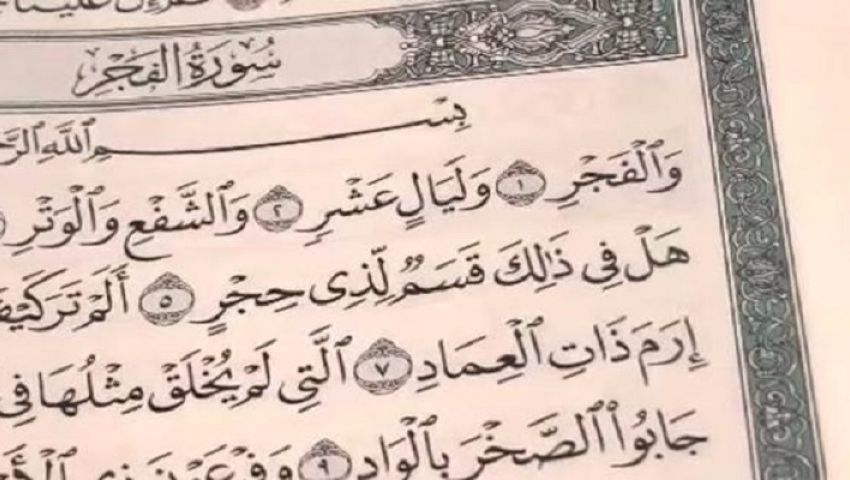 سُورَةُ الفَجْرِ
بِسْمِ ٱللَّهِ
وَٱلْفَجْرِ ١ وَلَيَالٍ عَشْرٍ ٢ وَٱلشَّفْعِ وَٱلْوَتْرِ
هَلْ فِى ذَٰلِكَ قَسَمٌ لِّذِى حِجْرٍ ٥ أَلَمْ تَرَ كَيْفَ
إِرَمَ ذَاتِ ٱلْعِمَادِ ٧ ٱلَّتِى لَمْ يُخْلَقْ مِثْلُهَا فِى
جَابُوا۟ ٱلصَّخْرَ بِٱلْوَادِ ٩ وَفِرْعَوْنَ ذِى